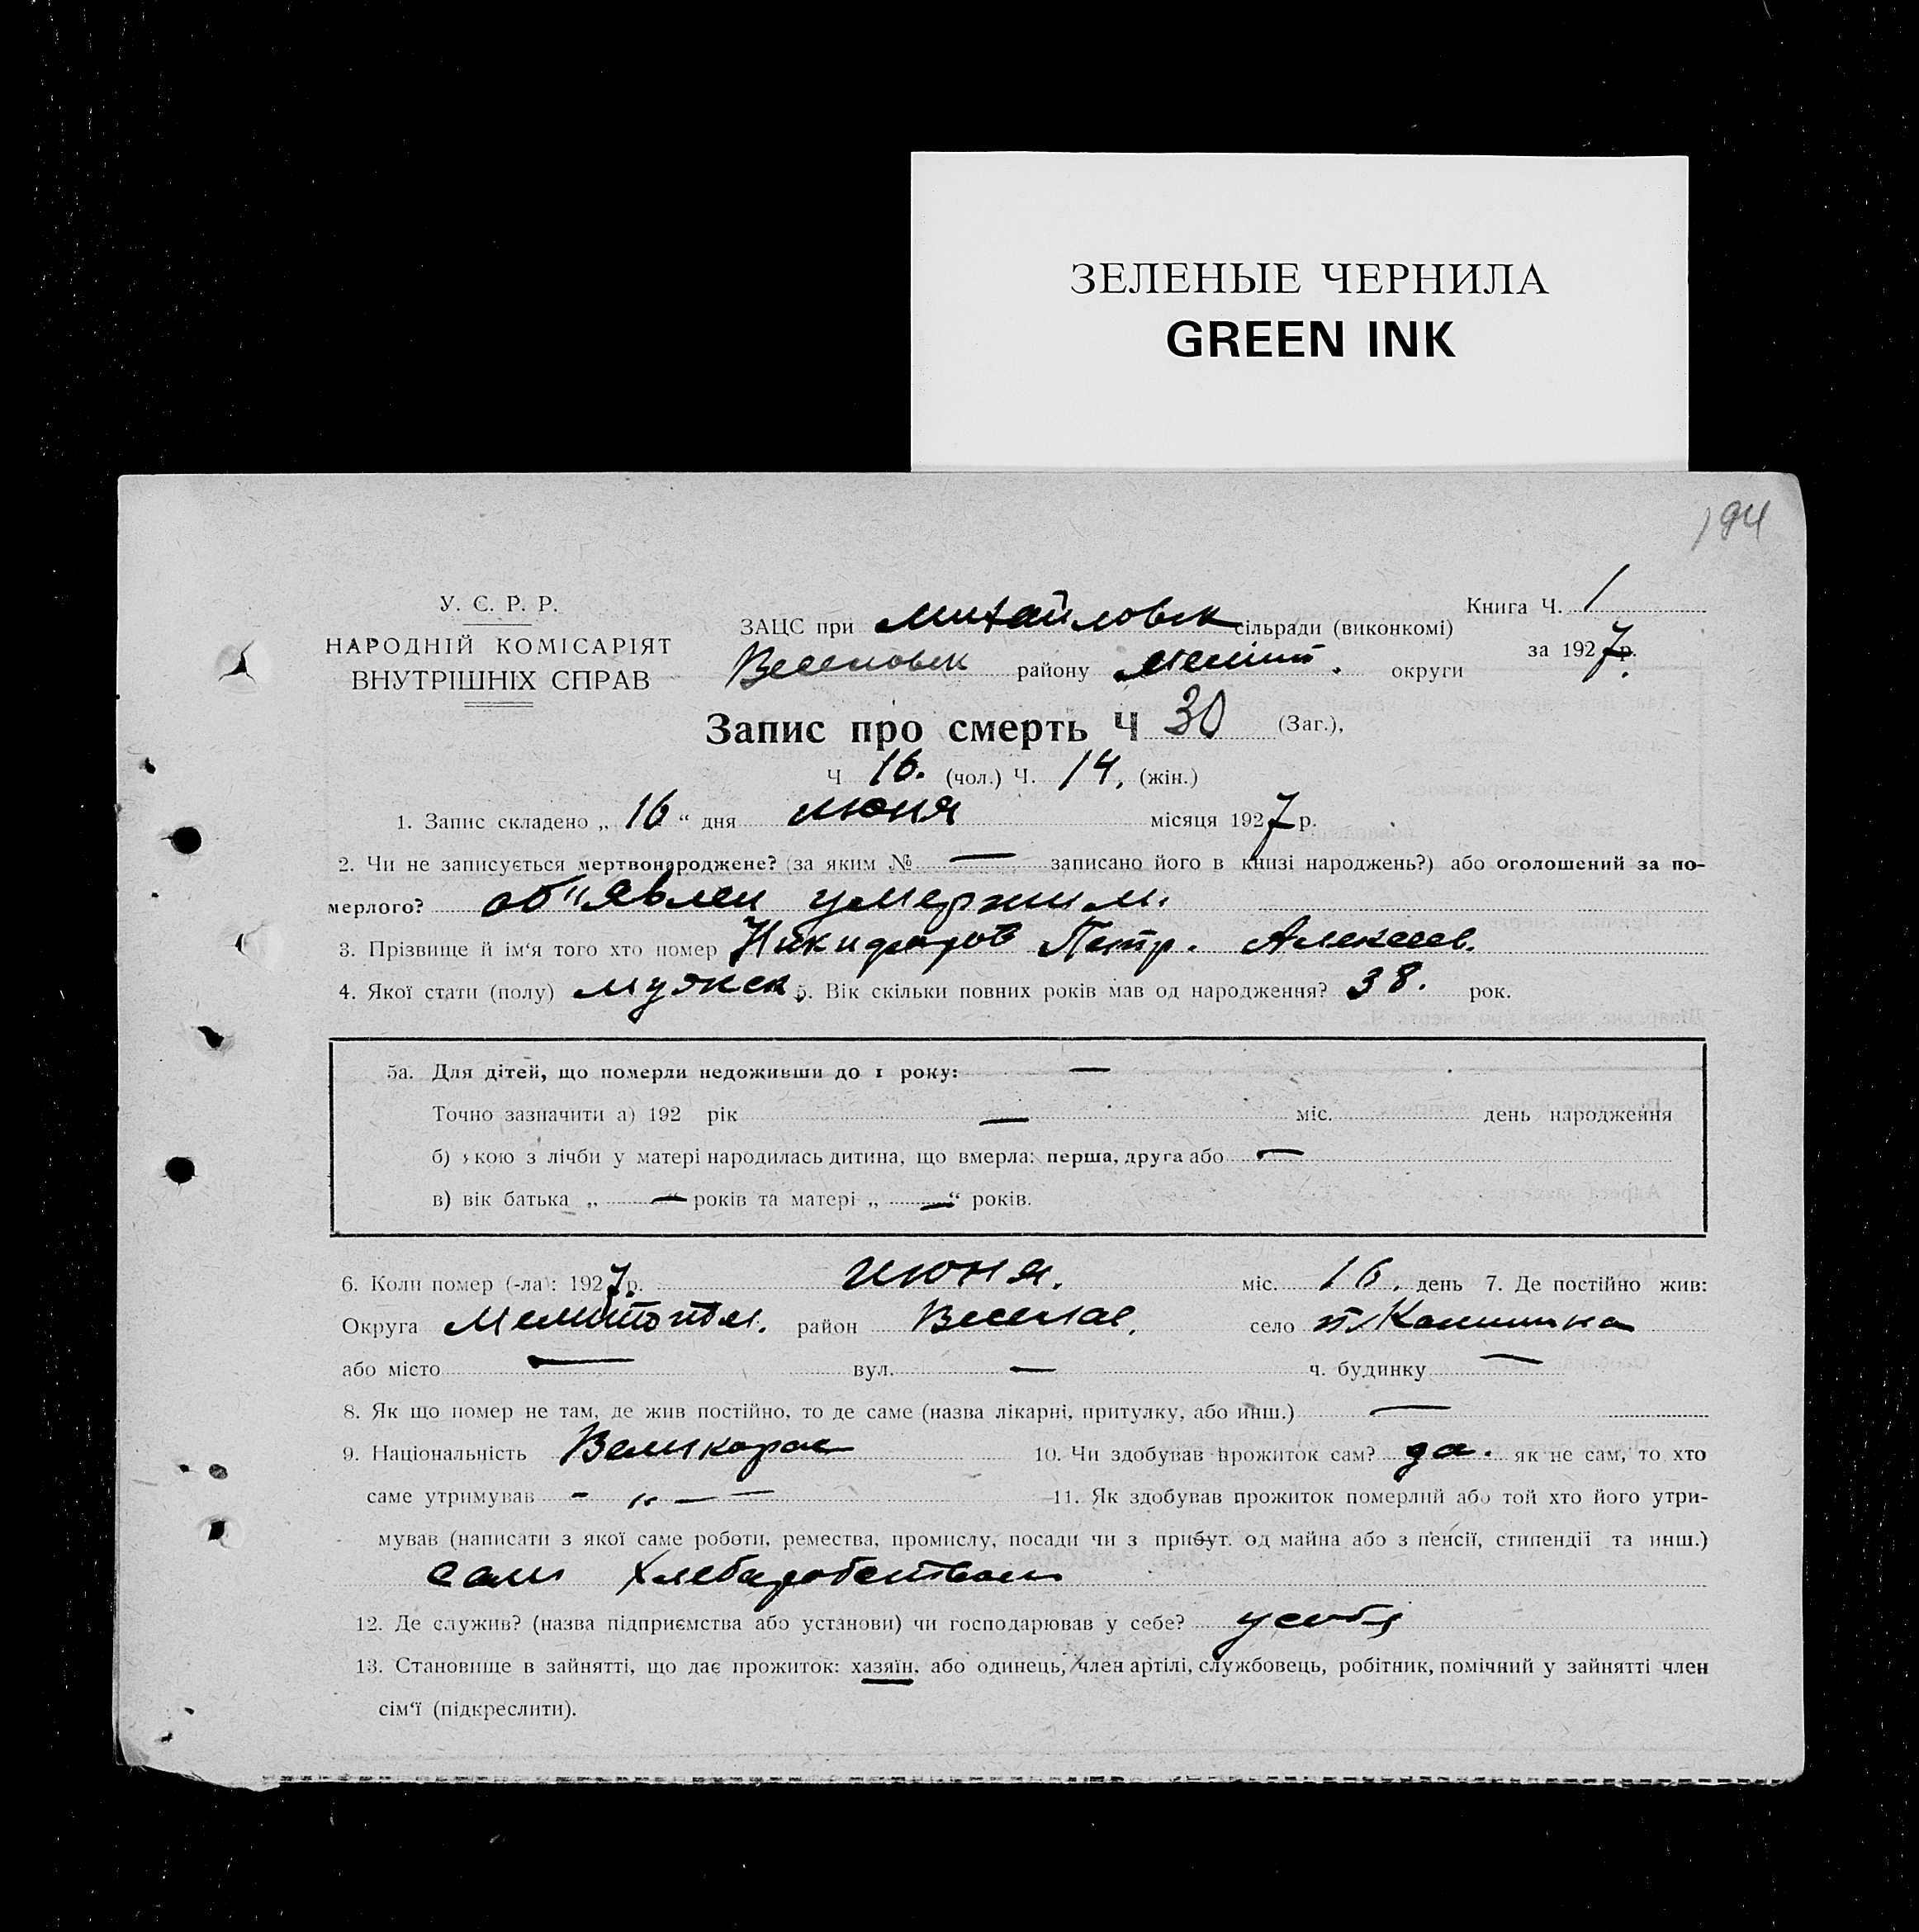 ЗЕЛЕНЫЕ ЧЕРНИЛА
GREEN INK
194
У. С. Р. Р.
НАРОДНІЙ КОМІСАРІЯТ
ВНУТРІШНІХ СПРАВ
Книга Ч. 1
ЗАЦС при Михайловск сільради (виконкомі)
за 1927 р.
Веселовск району Меліт. округи
Запис про смерть Ч 30 (Заг.),
Ч 16. (чол.) Ч. 14, (жін.)
1. Запис складено „ 16 “ дня июня місяця 1927 р.
2. Чи не записується мертвонароджене? (за яким № — записано його в книзі народжень?) або оголошений за по-
мерлого? об"явлен умершим.
3. Прізвище й ім‘я того хто помер Никифоров Петр. Алексеев.
4. Якої стати (полу) мужск. 5. Вік скільки повних років мав од народження? 38. рок.
5а. Для дітей, що померли недоживши до 1 року: —
Точно зазначити а) 192 рік — міс. день народження
б) якою з лічби у матері народилась дитина, що вмерла: перша, друга або —
в) вік батька „ — “ років та матері „ — “ років.
6. Коли помер (-ла): 1927 р. июня. міс. 16. день 7. Де постійно жив:
Округа Мелитопол. район Веселов. село
або місто — вул. — ч. будинку —
8. Як що помер не там, де жив постійно, то де саме (назва лікарні, притулку, або инш.) —
9. Національність Великорос 10. Чи здобував прожиток сам? да. як не сам, то хто
саме утримував - „ — — 11. Як здобував прожиток померлий або той хто його утри-
мував (написати з якої саме роботи, ремества, промислу, посади чи з прибут. од майна або з пенсії, стипендії та инш.)
сам хлебаробством
12. Де служив? (назва підприємства або установи) чи господарював у себе? у себя
13. Становище в зайнятті, що дає прожиток: хазяїн, або одинець, член артілі, службовець, робітник, помічний у зайнятті член
сім‘ї (підкреслити).